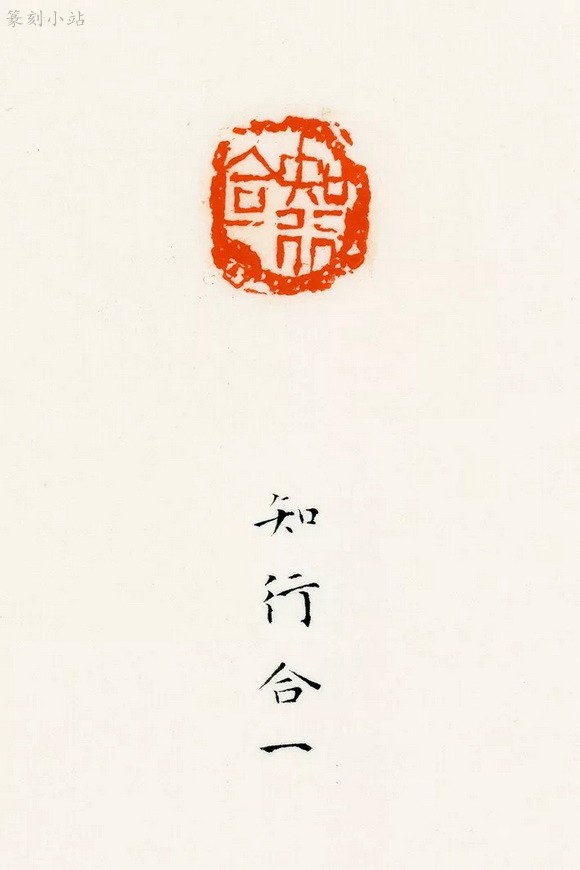 篆刻小站
知行合一
知行合一